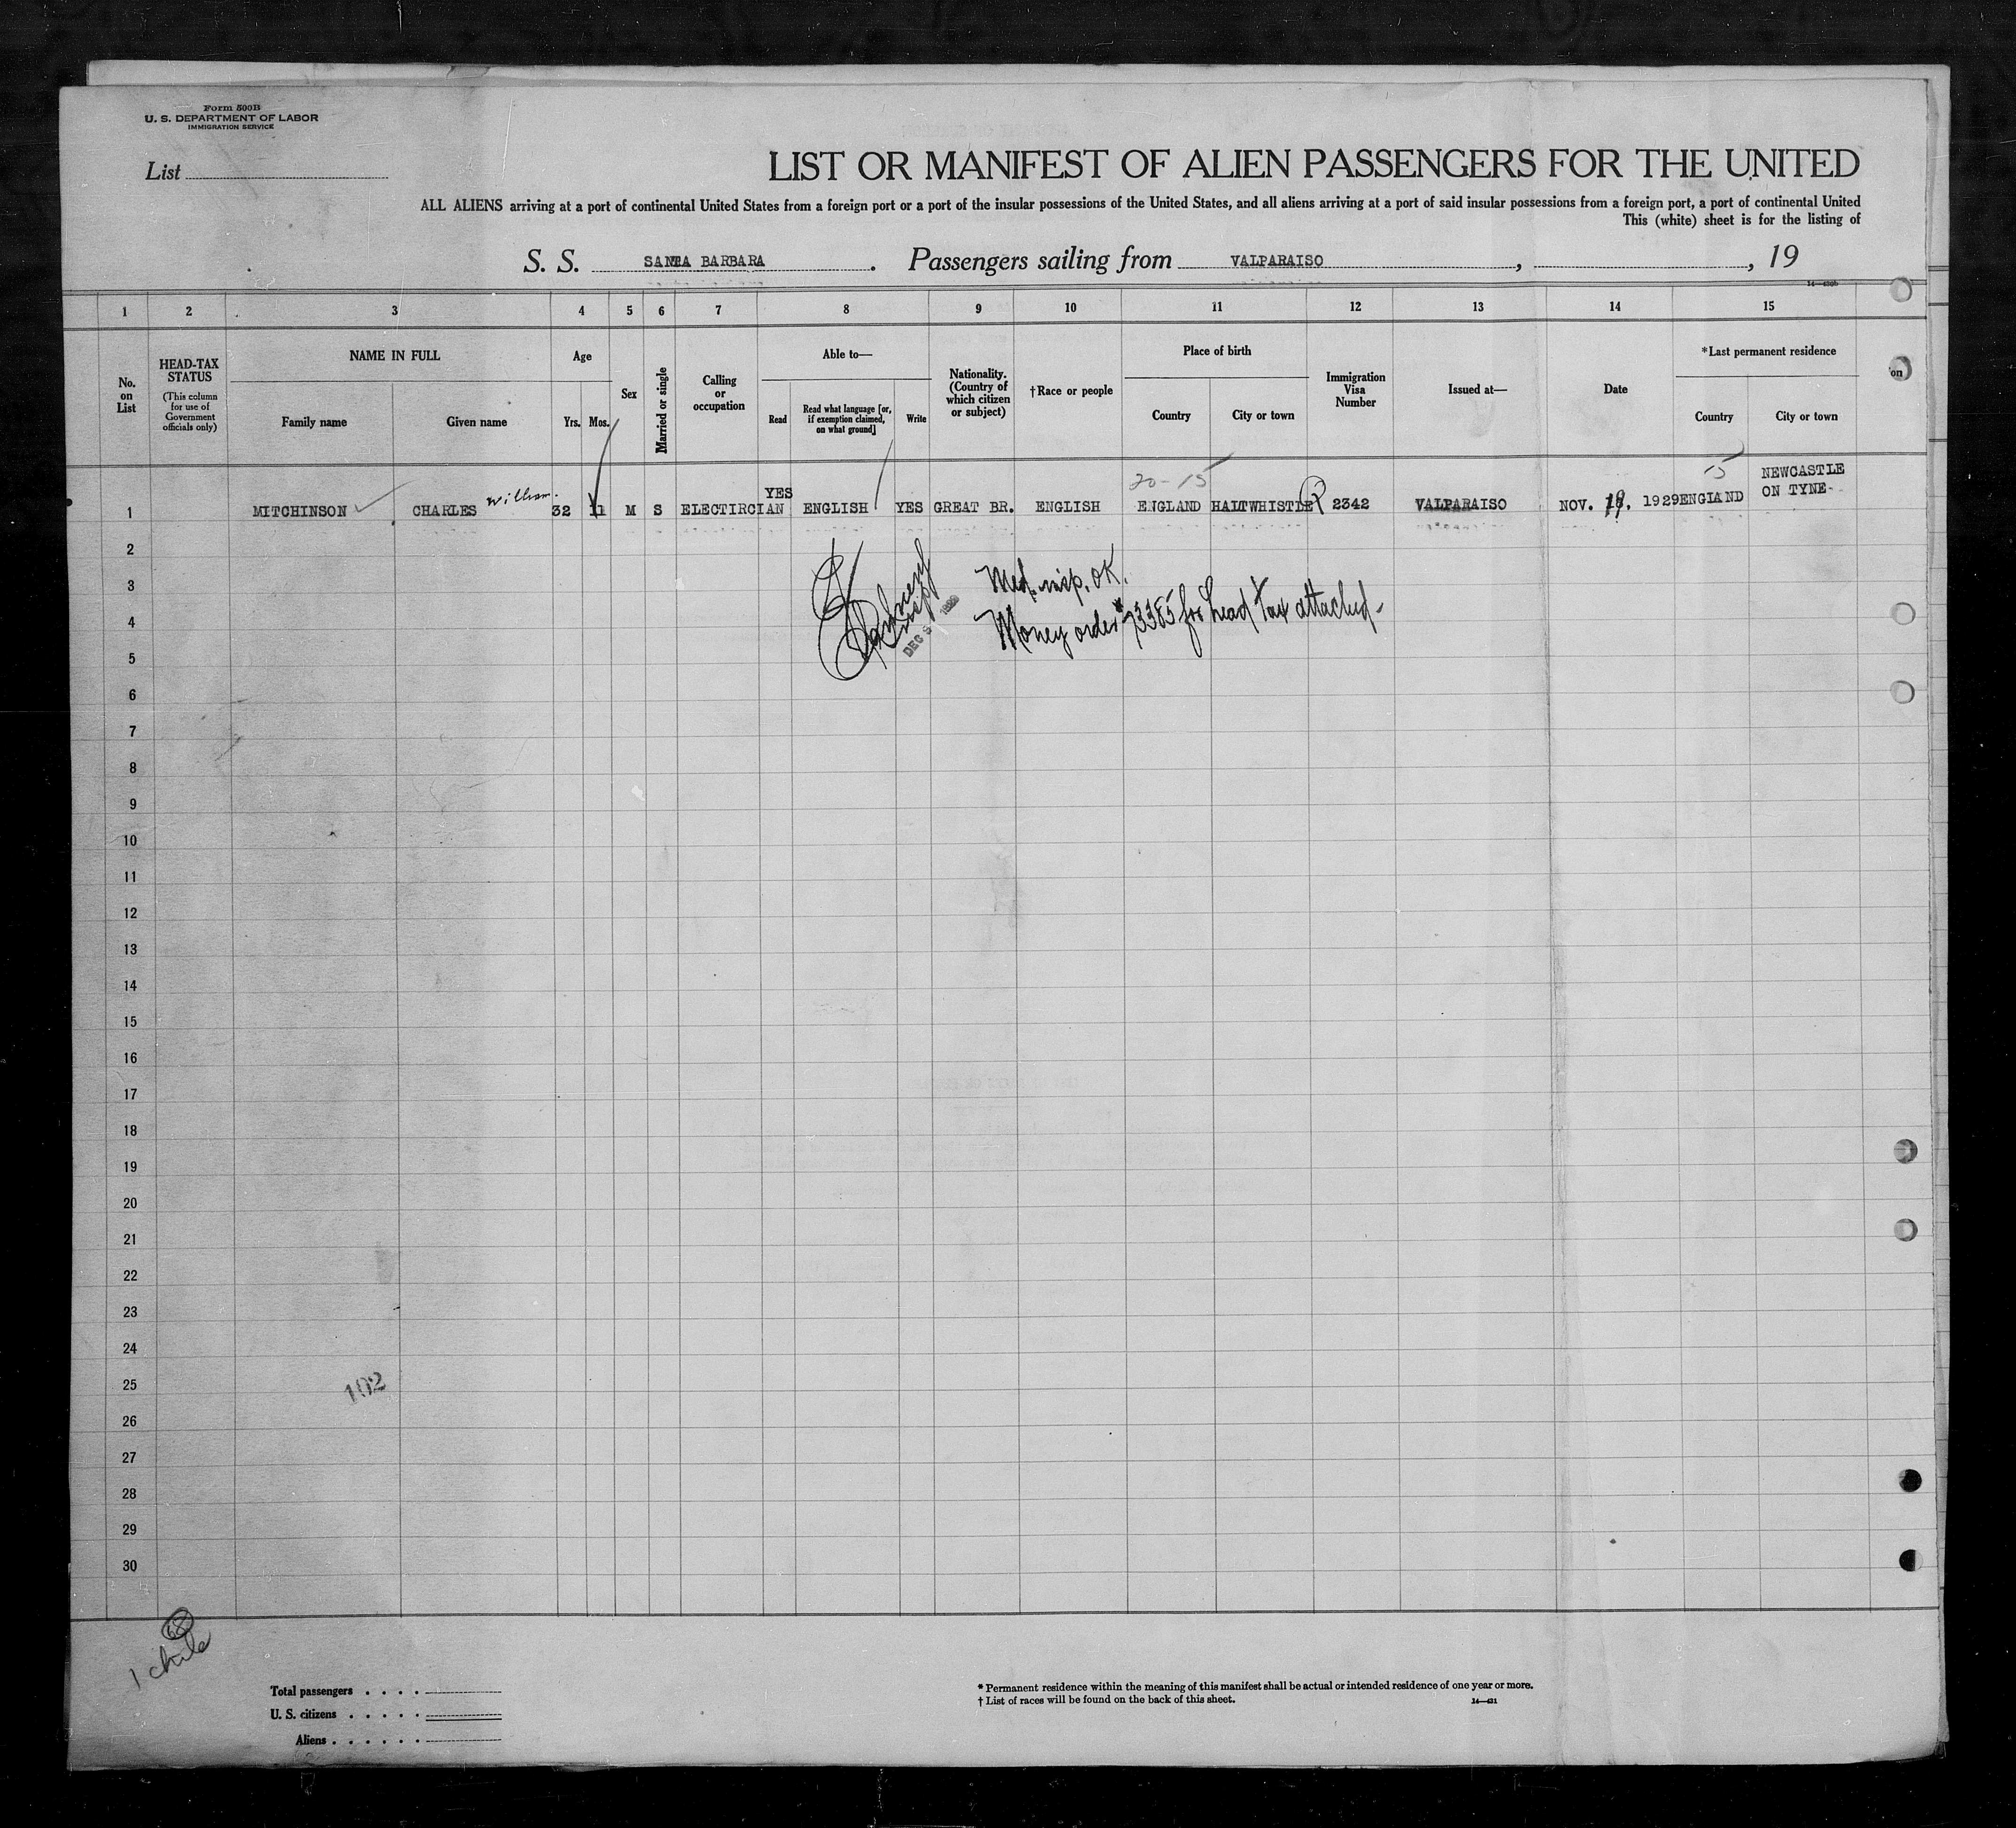 Form 500B
U. S. DEPARTMENT OF LABOR
IMMIGRATION SERVICE
List
LIST OR MANIFEST OF ALIEN PASSENGERS FOR THE UNITED
ALL ALIENS arriving at a port of continental United States from a foreign port or a port of the insular possessions of the United States, and all aliens arriving at a port of said insular possessions from a foreign port, a port of continental United
This (white) sheet is for the listing of
S. S. SANTA BARBARA . Passengers sailing from VALPARAISO , , 19
14—430b
1 2 3 4 5 6 7 8 9 10 11 12 13 14 15
No. on List
HEAD-TAX STATUS
(This column for use of Government officials only)
NAME IN FULL
Family name
Given name
Age
Yrs.
Mos.
Sex
Married or single
Calling or occupation
Able to—
Read
Read what language [or, if exemption claimed, on what ground]
Write
Nationality. (Country of which citizen or subject)
†Race or people
Place of birth
Country
City or town
Immigration Visa Number
Issued at—
Date
*Last permanent residence
Country
City or town
on
20-15
15
1 MITCHINSON CHARLES William. 32 11 M S ELECTIRCIAN YES ENGLISH YES GREAT BR. ENGLISH ENGLAND HALTWHISTLE 2342 VALPARAISO NOV. 1929 ENGLAND NEWCASTLE ON TYNE-
2
3 Med. insp. OK.
4 Money order # 73385 for head tax attached-
DEC 5 1929
5
6
7
8
9
10
11
12
13
14
15
16
17
18
19
20
21
22
23
24
25
102
26
27
28
29
30
1 chile
Total passengers . . . .
U. S. citizens . . . . .
Aliens . . . . . .
* Permanent residence within the meaning of this manifest shall be actual or intended residence of one year or more.
† List of races will be found on the back of this sheet.
14—431